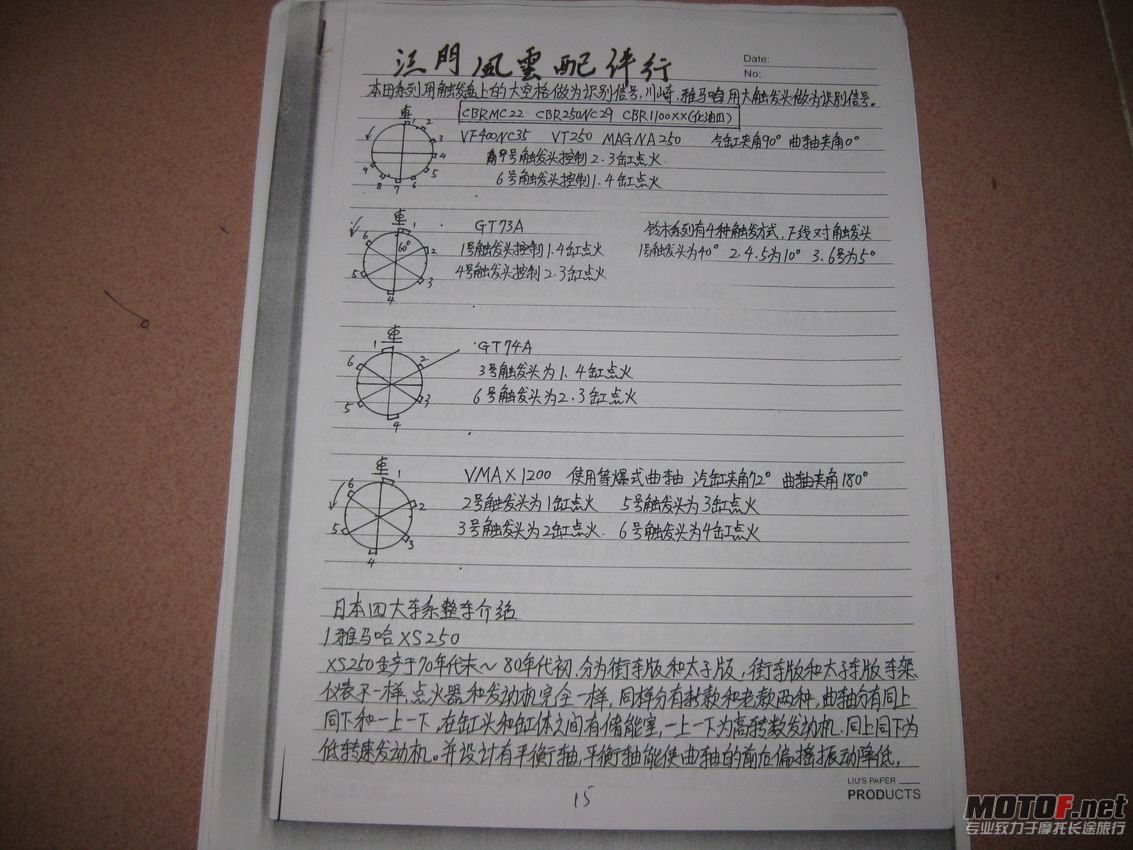 江門風雲配件行
Date:
No:
本田系列用触发盘上的大空格做为识别信号,川崎、雅马哈用大触发头做为识别信号。
車
CBRMC22 CBR250NC29 CBR1100XX(化油四)
VF400NC35 VT250 MAGNA250 汽缸夹角90° 曲轴夹角0°
9号触发头控制2.3缸点火.
6号触发头控制1.4缸点火
1 2 3 4 5 6 7 8 9
車
GT73A 铃木系列有4种触发方式,下线对角触发头
1号触发头控制1.4缸点火 1号触发头为40° 2.4.5为10° 3.6号为5°
4号触发头控制2.3缸点火
60°
1 2 3 4 5 6
車
GT74A
3号触发头为1.4缸点火
6号触发头为2.3缸点火
1 2 3 4 5 6
車
VMAX1200 使用等爆式曲轴 汽缸夹角72° 曲轴夹角180°
2号触发头为1缸点火 5号触发头为3缸点火
3号触发头为2缸点火. 6号触发头为4缸点火
1 2 3 4 5 6
日本四大车系整车介绍
1雅马哈XS250
XS250生产于70年代末~80年代初、分为街车版和太子版,街车版和太子车版车架
仪表不一样,点火器和发动机完全一样,同样分有新款和老款两种,曲轴分有同上
同下和一上一下,在缸头和缸体之间有储能室,一上一下为高转数发动机、同上同下为
低转速发动机。并设计有平衡轴,平衡轴能使曲轴的前后偏摇振动降低,
15
LIU'S PAPER
PRODUCTS
MOTOF.net
专业致力于摩托长途旅行